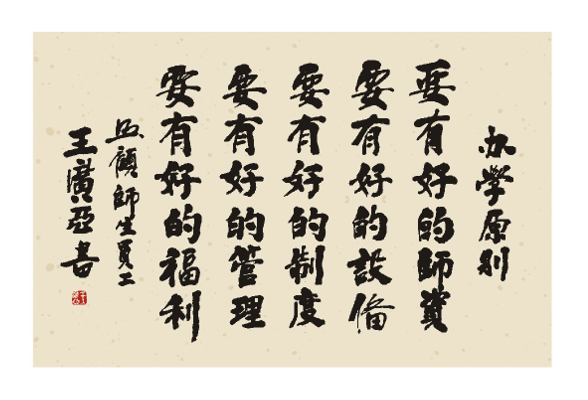 办学原则
要有好的師資
要有好的設備
要有好的制度
要有好的管理
要有好的福利
師生員工
王廣亞書